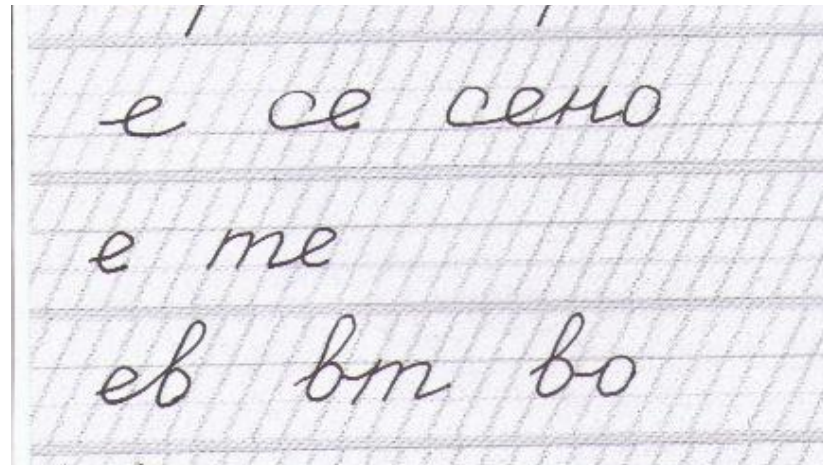 е се сено
е те
ев вт во